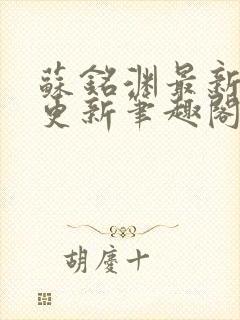 蘇銘渊最新
更新筆趣閣
胡慶十